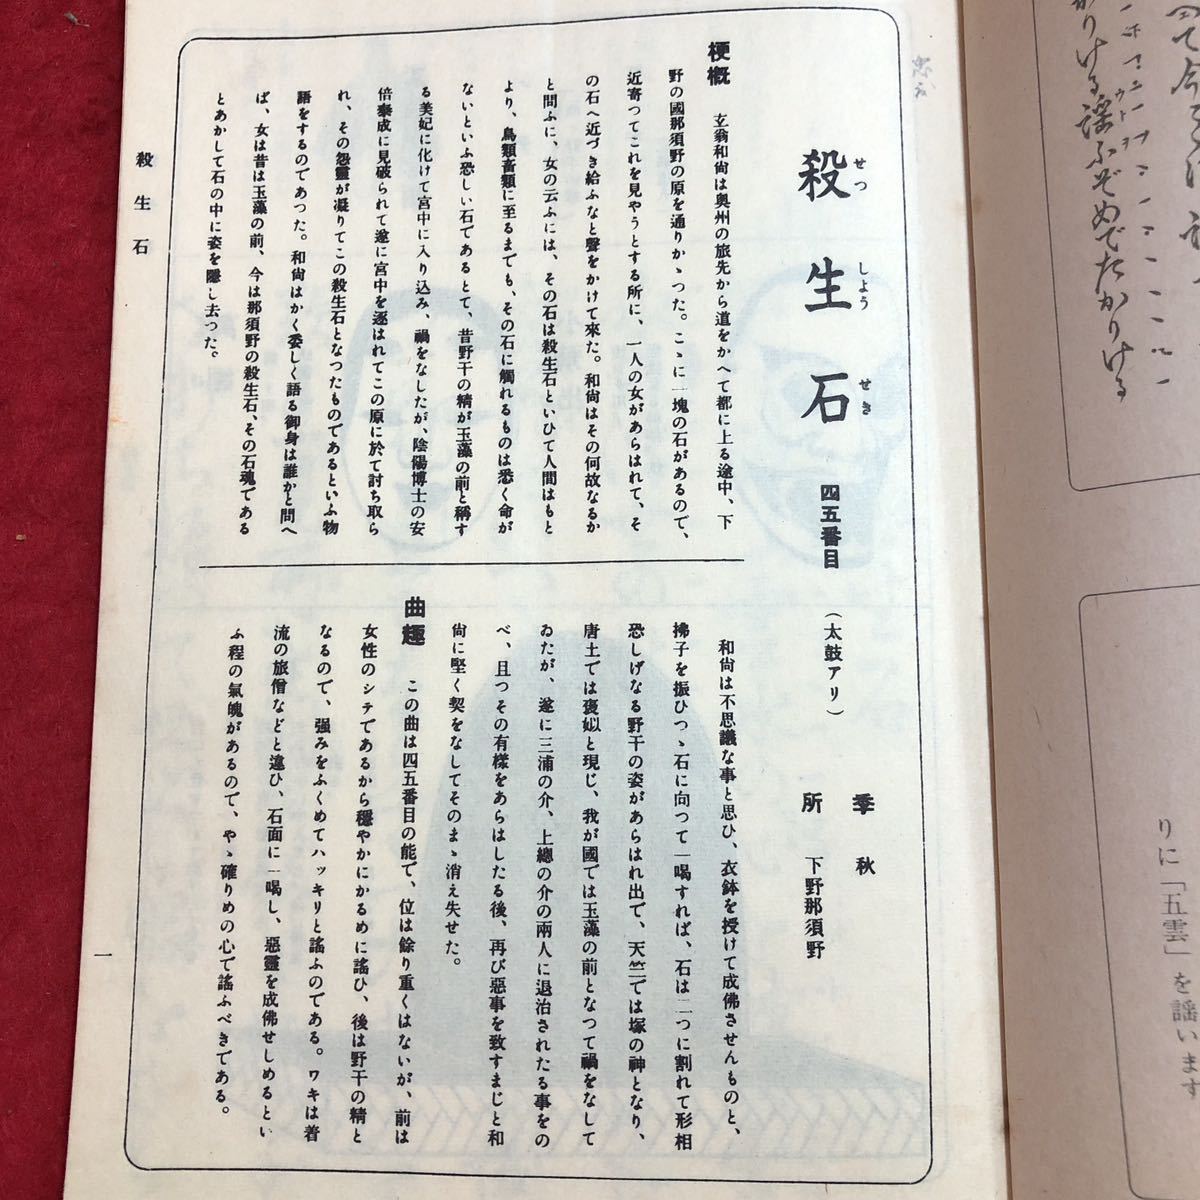 殺生石
せつしようせき
四五番目
(太鼓アリ)
季　秋
所　下野那須野
梗概　玄翁和尚は奥州の旅先から道をかへて都に上る途中、下
野の國那須野の原を通りかゝつた。こゝに一塊の石があるので、
近寄つてこれを見やうとする所に、一人の女があらはれて、そ
の石へ近づき給ふなと聲をかけて來た。和尚はその何故なるか
と問ふに、女の云ふには、その石は殺生石といひて人間はもと
より、鳥類畜類に至るまでも、その石に觸れるものは悉く命が
ないといふ恐しい石であるとて、昔野干の精が玉藻の前と稱す
る美妃に化けて宮中に入り込み、禍をなしたが、陰陽博士の安
倍泰成に見破られて遂に宮中を逐はれてこの原に於て討ち取ら
れ、その怨靈が凝りてこの殺生石となつたものであるといふ物
語をするのであつた。和尚はかく委しく語る御身は誰かと問へ
ば、女は昔は玉藻の前、今は那須野の殺生石、その石魂である
とあかして石の中に姿を隱し去つた。
和尚は不思議な事と思ひ、衣鉢を授けて成佛させんものと、
拂子を振ひつゝ石に向つて一喝すれば、石は二つに割れて形相
恐しげなる野干の姿があらはれ出で、天竺では塚の神となり、
唐土では褒姒と現じ、我が國では玉藻の前となつて禍をなして
ゐたが、遂に三浦の介、上總の介の兩人に退治されたる事をの
べ、且つその有樣をあらはしたる後、再び惡事を致すまじと和
尚に堅く契をなしてそのまゝ消え失せた。
曲趣　この曲は四五番目の能で、位は餘り重くはないが、前は
女性のシテであるから穩やかにかるめに謠ひ、後は野干の精と
なるので、强みをふくめてハッキリと謠ふのである。ワキは着
流の旅僧などと違ひ、石面に一喝し、惡靈を成佛せしめるとい
ふ程の氣魄があるので、やゝ確りめの心で謠ふべきである。
殺生石
一
かりける謠ふぞめでたかりける
りに「五雲」を謡います